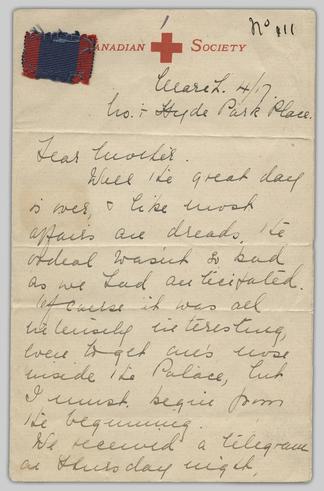 1
No 111
CANADIAN SOCIETY
March. 4/17.
No. 1 Hyde Park Place.
Dear Mother.
Well the great day
is over, & like most
affairs one dreads, the
ordeal wasn't so bad
as we had anticipated.
Of course it was all
intensely interesting,
even to get one's nose
inside the Palace, but
I must begin from
the beginning.
We received a telegram
on Thursday night,